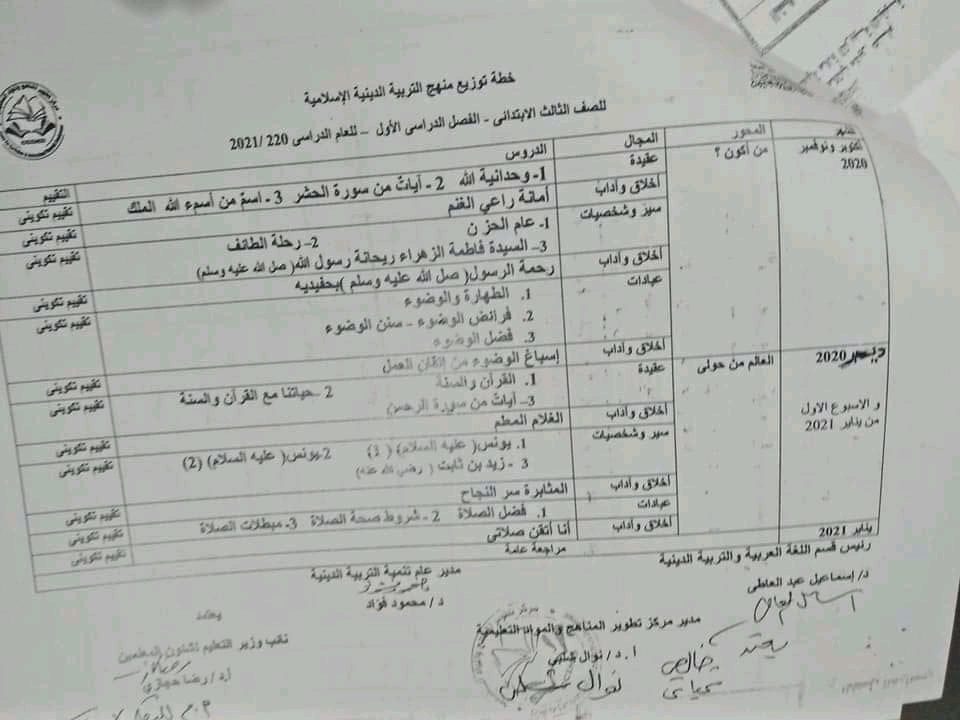 خطة توزيع منهج التربية الدينية الإسلامية
للصف الثالث الابتدائى - الفصل الدراسى الأول - للعام الدراسى 220 /2021
الشهر المحور المجال الدروس التقييم
أكتوبر ونوفمبر 2020 من أكون ؟ عقيدة 1- وحدانية الله 2 - آياتٌ من سورة الحشر 3 - اسمٌ من أسمء الله الملك تقييم تكوينى
أخلاق وآداب أمانة راعي الغنم تقييم تكوينى
سير وشخصيات 1- عام الحز ن 2– رحلة الطائف
3– السيدة فاطمة الزهراء ريحانة رسول الله( صل الله عليه وسلم) تقييم تكوينى
أخلاق وآداب رحمة الرسول( صل الله عليه وسلم )بحفيديه تقييم تكوينى
عبادات 1. الطهارة والوضوء
2. فرائض الوضوء - سنن الوضوء
3. فضل الوضوء تقييم تكوينى
أخلاق وآداب إسباغ الوضوء من إتقان العمل تقييم تكوينى
ديسمبر 2020 العالم من حولى عقيدة 1. القرآن والسنة 2 –حياتنا مع القرآن والسنة
و الاسبوع الاول من يناير 2021 3– آياتٌ من سورة الرحمن تقييم تكوينى
أخلاق وآداب الغلام المعلم تقييم تكوينى
سير وشخصيات 1. يونس( عليه السلام) ( 1) 2-يونس( عليه السلام) (2)
3 - زيد بن ثابت ( رضي الله عنه) تقييم تكوينى
أخلاق وآداب المثابرة سر النجاح
عبادات 1. فضل الصلاة 2 - شروط صحة الصلاة 3- مبطلات الصلاة تقييم تكوينى
أخلاق وآداب أنا أتقن صلاتى تقييم تكوينى
يناير 2021 مراجعة عامة تقييم تكوينى
رئيس قسم اللغة العربية والتربية الدينية
د/ إسماعيل عبد العاطى
مدير عام تنمية التربية الدينية
د/ محمود فؤاد
مدير مركز تطوير المناهج والمواد التعليمية
أ.د/ نوال شلبي
يعتمد
نائب وزير التعليم لشئون المعلمين
أ.د/ رضا حجازي